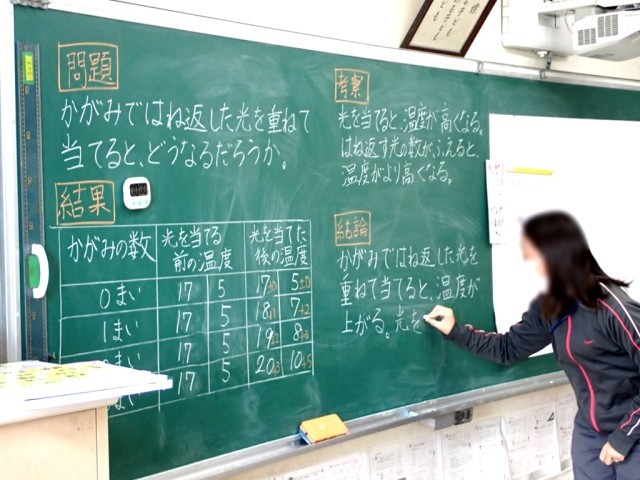 問題
かがみではね返した光を重ねて
当てると、どうなるだろうか。
結果
かがみの数 光を当てる前の温度 光を当てた後の温度
0まい 17 5 17±0 5±0
1まい 17 5 18+1 7+2
まい 17 5 19+2 8+3
まい 17 5 20+3 10+5
考察
光を当てると、温度が高くなる。
はね返す光の数が、ふえると、
温度がより高くなる。
結論
かがみではね返した光を
重ねて当てると、温度が
上がる。光を